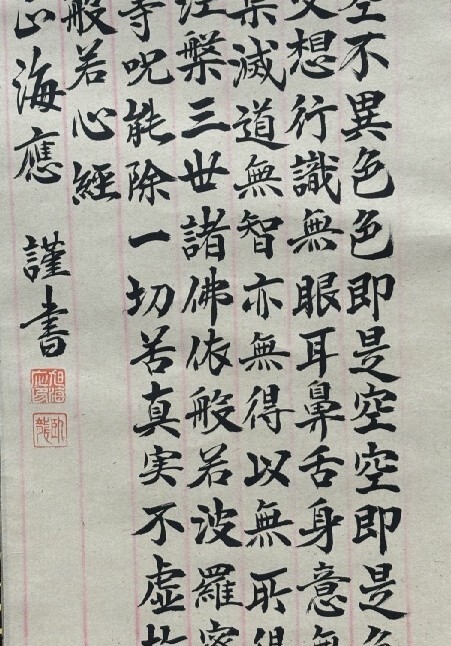 空不異色色即是空空即是色
受想行識無眼耳鼻舌身意無
集滅道無智亦無得以無所得
涅槃三世諸佛依般若波羅密
等呪能除一切苦真実不虚故
般若心經
山海應 謹書